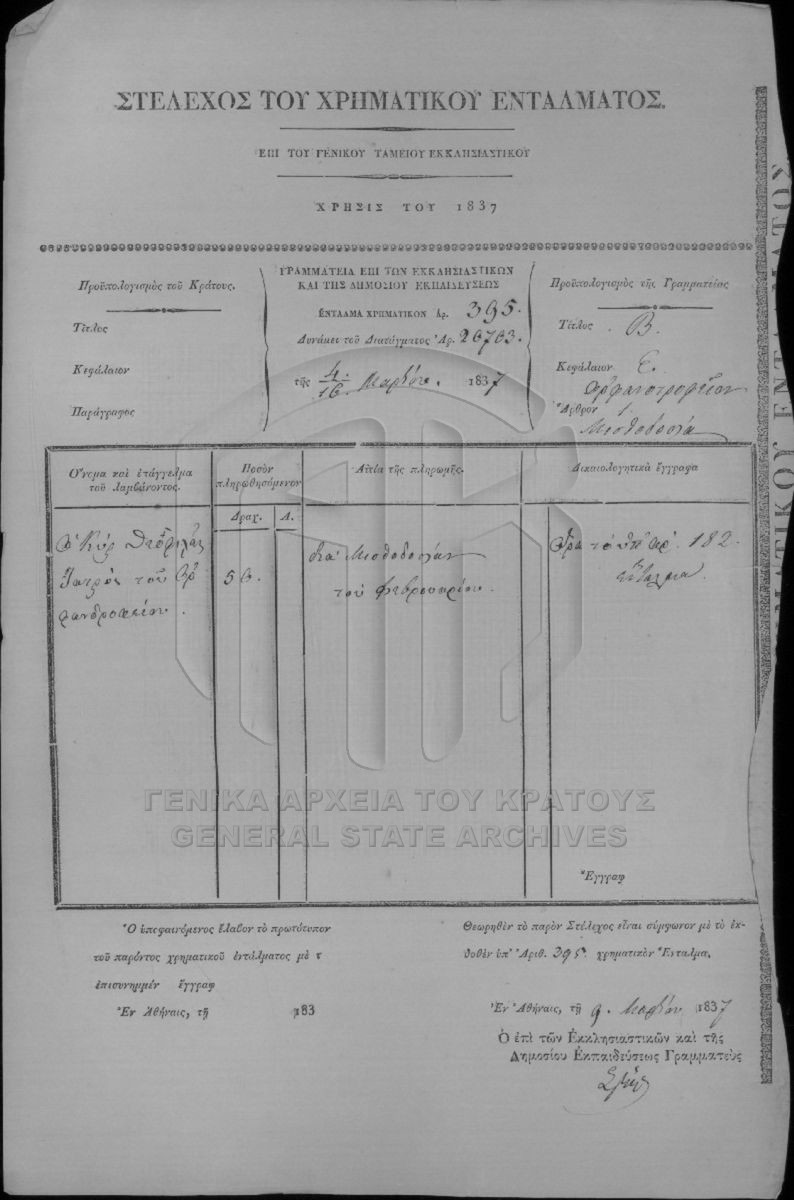 ΣΤΕΛΕΧΟΣ ΤΟΥ ΧΡΗΜΑΤΙΚΟΥ ΕΝΤΑΛΜΑΤΟΣ.
ΕΠΙ ΤΟΥ ΓΕΝΙΚΟΥ ΤΑΜΕΙΟΥ ΕΚΚΛΗΣΙΑΣΤΙΚΟΥ
ΧΡΗΣΙΣ ΤΟΥ 1837
Προϋπολογισμὸς τοῦ Κράτους.
Τίτλος
Κεφάλαιον
Παράγραφος
ΓΡΑΜΜΑΤΕΙΑ ΕΠΙ ΤΩΝ ΕΚΚΛΗΣΙΑΣΤΙΚΩΝ
ΚΑΙ ΤΗΣ ΔΗΜΟΣΙΟΥ ΕΚΠΑΙΔΕΥΣΕΩΣ
ΕΝΤΑΛΜΑ ΧΡΗΜΑΤΙΚΟΝ Ἀρ. 395.
Δυνάμει τοῦ Διατάγματος Ἀρ. 20703.
τῆς 4/16 Μαρτίου. 1837
Προϋπολογισμὸς τῆς Γραμματείας
Τίτλος Β.
Κεφάλαιον Ε.
Ὀρφανοτροφεῖον
Ἄρθρον 1.
Μισθοδοσία
Ὄνομα καὶ ἐπάγγελμα
τοῦ λαμβάνοντος.
Ποσὸν
πληρωθησόμενον
Δραχ. Λ.
Αἰτία τῆς πληρωμῆς.
Δικαιολογητικὰ ἔγγραφα
Ὁ Κύρ
Ἰατρὸς τοῦ Ὀρ
φανοτροφείου.
50.
διὰ Μισθοδοσίαν
τοῦ Φεβρουαρίου.
Ὅρα τὸ ὑπ' ἀρ. 182.
ἔνταλμα.
Ἔγγραφ
Ὁ ὑπεφαινόμενος ἔλαβον τὸ πρωτότυπον
τοῦ παρόντος χρηματικοῦ ἐντάλματος μὲ τ
ἐπισυνημμέν ἔγγραφ
Ἐν Ἀθήναις, τῇ 183
Θεωρηθὲν τὸ παρὸν Στέλεχος εἶναι σύμφωνον μὲ τὸ ἐκ-
δοθὲν ὑπ' Ἀριθ. 395. χρηματικὸν Ἔνταλμα.
Ἐν Ἀθήναις, τῇ 9. Μαρτίου 1837
Ὁ ἐπὶ τῶν Ἐκκλησιαστικῶν καὶ τῆς
Δημοσίου Ἐκπαιδεύσεως Γραμματεὺς
ΓΕΝΙΚΑ ΑΡΧΕΙΑ ΤΟΥ ΚΡΑΤΟΥΣ
GENERAL STATE ARCHIVES